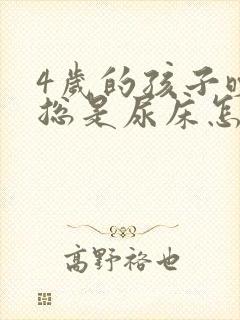 4岁的孩子晚
总是尿床怎
高野裕也